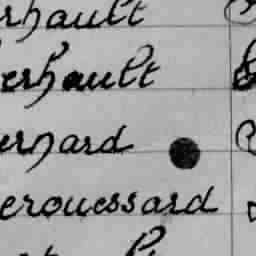 erhault
erhault
ernard
erouessard